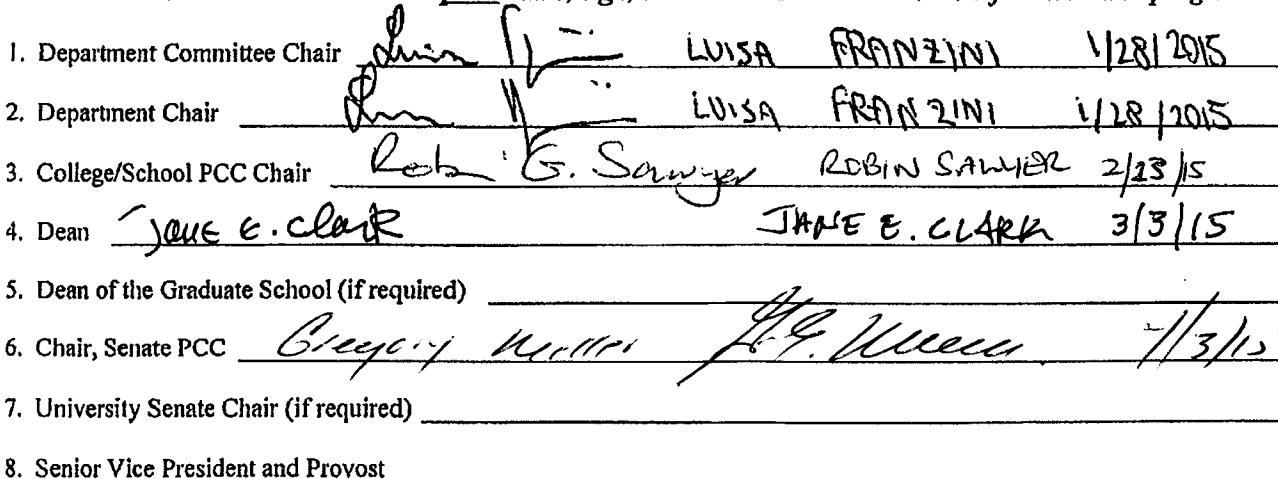 1. Department Committee Chair LUISA FRANZINI 1/28/2015
2. Department Chair LUISA FRANZINI 1/28/2015
3. College/School PCC Chair Robin G. Sawyer ROBIN SAWYER 2/23/15
4. Dean Jane E. Clark JANE E. CLARK 3/3/15
5. Dean of the Graduate School (if required)
6. Chair, Senate PCC Gregory Miller
7. University Senate Chair (if required)
8. Senior Vice President and Provost